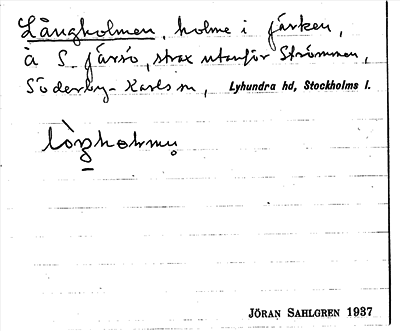 Långholmen, holme i Järken,
å S. Järsö, strax utanför Strömmen,
Söderby-Karls sn, Lyhundra hd, Stockholms l.
JÖRAN SAHLGREN 1937